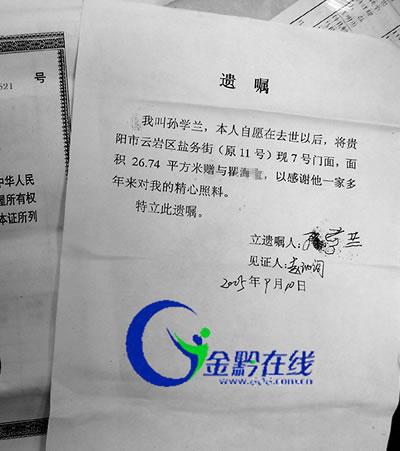 号
621
遗 嘱
我叫孙学兰，本人自愿在去世以后，将贵
阳市云岩区盐务街（原11号）现7号门面，面
积 26.74 平方米赠与瞿海，以感谢他一家多
年来对我的精心照料。
特立此遗嘱。
立遗嘱人：孙学兰
见证人：
2005年9月10日
中华人民
屋所有权
本证所列
金黔在线
www.gog.com.cn